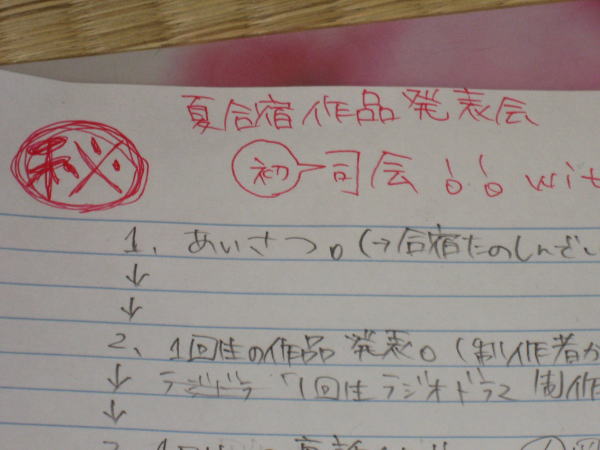 夏合宿作品発表会
㊙
初 司会 with
1、あいさつ。(→合宿たのしんでい
↓
↓
2、1回性の作品発表。(制作者か
↓ ラジドラ「1回性ラジオドラ2 制作
↓